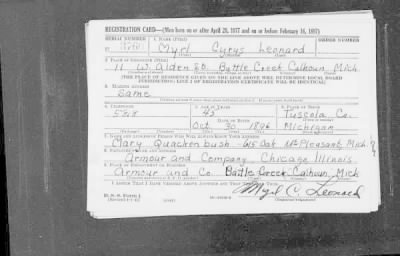 REGISTRATION CARD—(Men born on or after April 28, 1877 and on or before February 16, 1897)
SERIAL NUMBER 1. NAME (Print) ORDER NUMBER
Myrl Cyrus Leonard
2. PLACE OF RESIDENCE (Print)
11 W. Alden Battle Creek Calhoun, Mich.
[THE PLACE OF RESIDENCE GIVEN ON THE LINE ABOVE WILL DETERMINE LOCAL BOARD
JURISDICTION; LINE 2 OF REGISTRATION CERTIFICATE WILL BE IDENTICAL]
3. MAILING ADDRESS
Same
4. TELEPHONE 5. AGE IN YEARS 6. PLACE OF BIRTH
45 Tuscola Co.
Oct 30 1896 Michigan
7. NAME AND ADDRESS OF PERSON WHO WILL ALWAYS KNOW YOUR ADDRESS
Mary Quackenbush Oak Mt Pleasant, Mich.
8. EMPLOYER'S NAME AND ADDRESS
Armour and Company Chicago Illinois
9. PLACE OF EMPLOYMENT OR BUSINESS
Armour and Co Battle Creek Calhoun, Mich
I AFFIRM THAT I HAVE VERIFIED ABOVE ANSWERS AND THAT THEY ARE TRUE.
Myrl C. Leonard